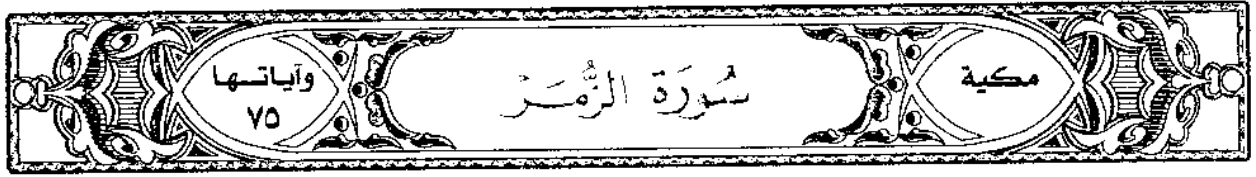 مكية
سُورَة الزُّمَر
وآياتها
٧٥